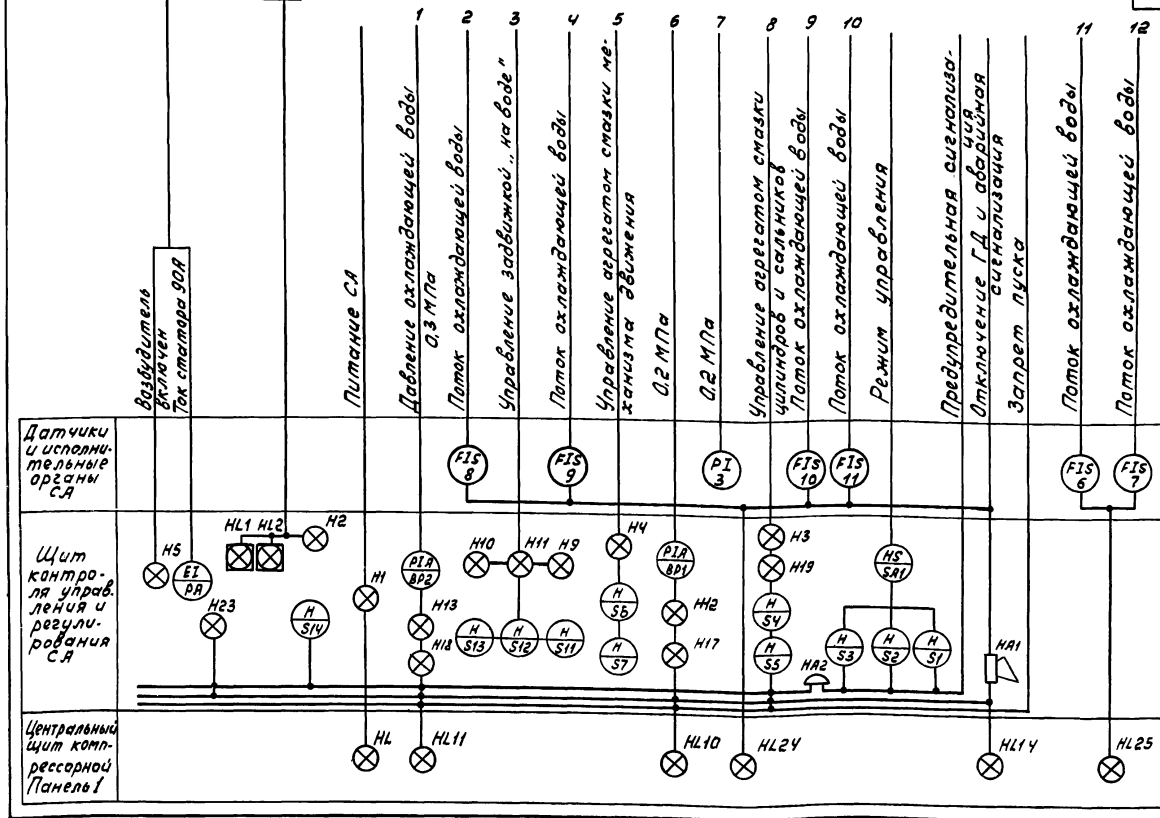 1
2
3
4
5
6
7
8
9
10
11
12
Возбудитель
включен
Ток статора 90А
Питание СА
Давление охлаждающей воды
0,3 МПа
Поток охлаждающей воды
Управление задвижкой „на воде"
Поток охлаждающей воды
Управление агрегатом смазки ме-
ханизма движения
0.2 МПа
0.2 МПа
Управление агрегатом смазки
цилиндров и сальников
Поток охлаждающей воды
Поток охлаждающей воды
Режим управления
Предупредительная сигнализа-
ция
Отключение ГД и аварийная
сигнализация
Запрет пуска
Поток охлаждающей воды
Поток охлаждающей воды
Датчики
и исполни-
тельные
органы
СА
FIS
8
FIS
9
PI
3
FIS
10
FIS
11
FIS
6
FIS
7
Щит
контро-
ля управ.
ления и
регули-
рования
СА
H5
EI
PA
HL1
HL2
H2
H23
H
S14
H1
PIA
BP2
H13
H18
H10
H11
H9
H
S13
H
S12
H
S11
H4
H
S6
H
S7
PIA
BP1
H12
H17
H3
H19
H
S4
H
S5
HA2
HS
SA1
H
S3
H
S2
H
S1
HA1
Центральный
щит комп-
рессорной
Панель 1
HL
HL11
HL10
HL24
HL14
HL25